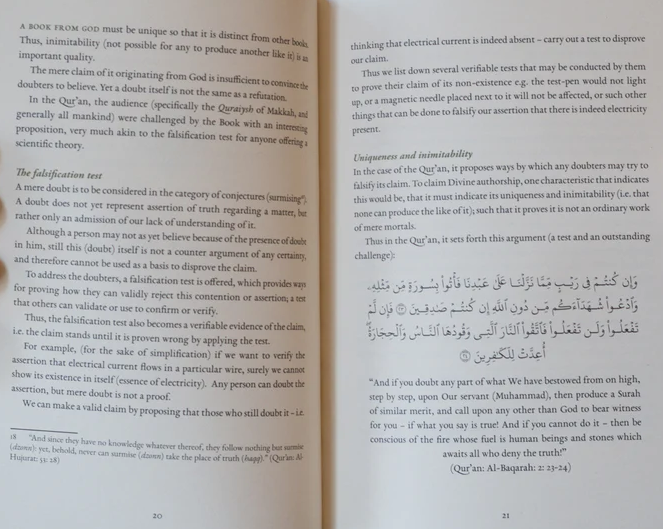 A BOOK FROM GOD must be unique so that it is distinct from other books.
Thus, inimitability (not possible for any to produce another like it) is an
important quality.
The mere claim of it originating from God is insufficient to convince the
doubters to believe. Yet a doubt itself is not the same as a refutation.
In the Qur'an, the audience (specifically the Quraiysh of Makkah, and
generally all mankind) were challenged by the Book with an interesting
proposition, very much akin to the falsification test for anyone offering a
scientific theory.
The falsification test
A mere doubt is to be considered in the category of conjectures (surmising¹⁸).
A doubt does not yet represent assertion of truth regarding a matter, but
rather only an admission of our lack of understanding of it.
Although a person may not as yet believe because of the presence of doubt
in him, still this (doubt) itself is not a counter argument of any certainty,
and therefore cannot be used as a basis to disprove the claim.
To address the doubters, a falsification test is offered, which provides ways
for proving how they can validly reject this contention or assertion; a test
that others can validate or use to confirm or verify.
Thus, the falsification test also becomes a verifiable evidence of the claim,
i.e. the claim stands until it is proven wrong by applying the test.
For example, (for the sake of simplification) if we want to verify the
assertion that electrical current flows in a particular wire, surely we cannot
show its existence in itself (essence of electricity). Any person can doubt the
assertion, but mere doubt is not a proof.
We can make a valid claim by proposing that those who still doubt it – i.e.
18 "And since they have no knowledge whatever thereof, they follow nothing but surmise
(dzann): yet, behold, never can surmise (dzann) take the place of truth (haqq)." (Qur'an: Al-
Hujurat: 53: 28)
20
thinking that electrical current is indeed absent – carry out a test to disprove
our claim.
Thus we list down several verifiable tests that may be conducted by them
to prove their claim of its non-existence e.g. the test-pen would not light
up, or a magnetic needle placed next to it will not be affected, or such other
things that can be done to falsify our assertion that there is indeed electricity
present.
Uniqueness and inimitability
In the case of the Qur'an, it proposes ways by which any doubters may try to
falsify its claim. To claim Divine authorship, one characteristic that indicates
this would be, that it must indicate its uniqueness and inimitability (i.e. that
none can produce the like of it); such that it proves it is not an ordinary work
of mere mortals.
Thus in the Qur'an, it sets forth this argument (a test and an outstanding
challenge):
وَإِن كُنتُمْ فِى رَيْبٍ مِّمَّا نَزَّلْنَا عَلَىٰ عَبْدِنَا فَأْتُوا۟ بِسُورَةٍ مِّن مِّثْلِهِۦ
وَٱدْعُوا۟ شُهَدَآءَكُم مِّن دُونِ ٱللَّهِ إِن كُنتُمْ صَٰدِقِينَ ۝٢٣ فَإِن لَّمْ
تَفْعَلُوا۟ وَلَن تَفْعَلُوا۟ فَٱتَّقُوا۟ ٱلنَّارَ ٱلَّتِى وَقُودُهَا ٱلنَّاسُ وَٱلْحِجَارَةُ ۖ
أُعِدَّتْ لِلْكَٰفِرِينَ ۝٢٤
"And if you doubt any part of what We have bestowed from on high,
step by step, upon Our servant (Muhammad), then produce a Surah
of similar merit, and call upon any other than God to bear witness
for you – if what you say is true! And if you cannot do it – then be
conscious of the fire whose fuel is human beings and stones which
awaits all who deny the truth!"
(Qur'an: Al-Baqarah: 2: 23-24)
21